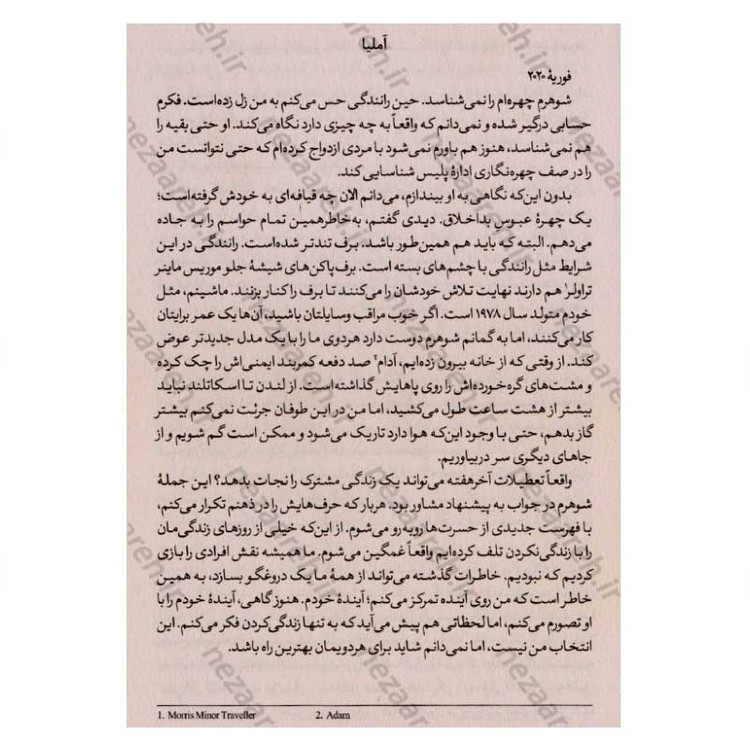 آملیا
فوریهٔ ۲۰۲۰
شوهرم چهره‌ام را نمی‌شناسد. حین رانندگی حس می‌کنم به من زل زده‌است. فکرم
حسابی درگیر شده و نمی‌دانم که واقعاً به چه چیزی دارد نگاه می‌کند. او حتی بقیه را
هم نمی‌شناسد، هنوز هم باورم نمی‌شود با مردی ازدواج کرده‌ام که حتی نتوانست من
را در صف چهره‌نگاری ادارهٔ پلیس شناسایی کند.
بدون این‌که نگاهی به او بیندازم، می‌دانم الان چه قیافه‌ای به خودش گرفته‌است؛
یک چهرهٔ عبوسِ بداخلاق. دیدی گفتم، به‌خاطرهمین تمام حواسم را به جاده
می‌دهم. البته که باید هم همین‌طور باشد، برف تندتر شده‌است. رانندگی در این
شرایط مثل رانندگی با چشم‌های بسته است. برف‌پاکن‌های شیشهٔ جلو موریس ماینر
تراولر۱ هم دارند نهایت تلاش خودشان را می‌کنند تا برف را کنار بزنند. ماشینم، مثل
خودم متولد سال ۱۹۷۸ است. اگر خوب مراقب وسایلتان باشید، آن‌ها یک عمر برایتان
کار می‌کنند، اما به گمانم شوهرم دوست دارد هردوی ما را با یک مدل جدیدتر عوض
کند. از وقتی که از خانه بیرون زده‌ایم، آدام۲ صد دفعه کمربند ایمنی‌اش را چک کرده
و مشت‌های گره‌خورده‌اش را روی پاهایش گذاشته‌است. از لندن تا اسکاتلند نباید
بیشتر از هشت ساعت طول می‌کشید، اما من در این طوفان جرئت نمی‌کنم بیشتر
گاز بدهم، حتی با وجود این‌که هوا دارد تاریک می‌شود و ممکن است گم شویم و از
جاهای دیگری سر دربیاوریم.
واقعاً تعطیلات آخرهفته می‌تواند یک زندگی مشترک را نجات بدهد؟ این جملهٔ
شوهرم در جواب به پیشنهاد مشاور بود. هربار که حرف‌هایش را در ذهنم تکرار می‌کنم،
با فهرست جدیدی از حسرت‌ها روبه‌رو می‌شوم. از این‌که خیلی از روزهای زندگی‌مان
را با زندگی‌نکردن تلف کرده‌ایم واقعاً غمگین می‌شوم. ما همیشه نقش افرادی را بازی
کردیم که نبودیم. خاطرات گذشته می‌تواند از همهٔ ما یک دروغگو بسازد، به همین
خاطر است که من روی آینده تمرکز می‌کنم؛ آیندهٔ خودم. هنوز گاهی، آیندهٔ خودم را با
او تصورم می‌کنم، اما لحظاتی هم پیش می‌آید که به تنها زندگی‌کردن فکر می‌کنم. این
انتخاب من نیست، اما نمی‌دانم شاید برای هردویمان بهترین راه باشد.
1. Morris Minor Traveller 2. Adam
nezaareh.ir